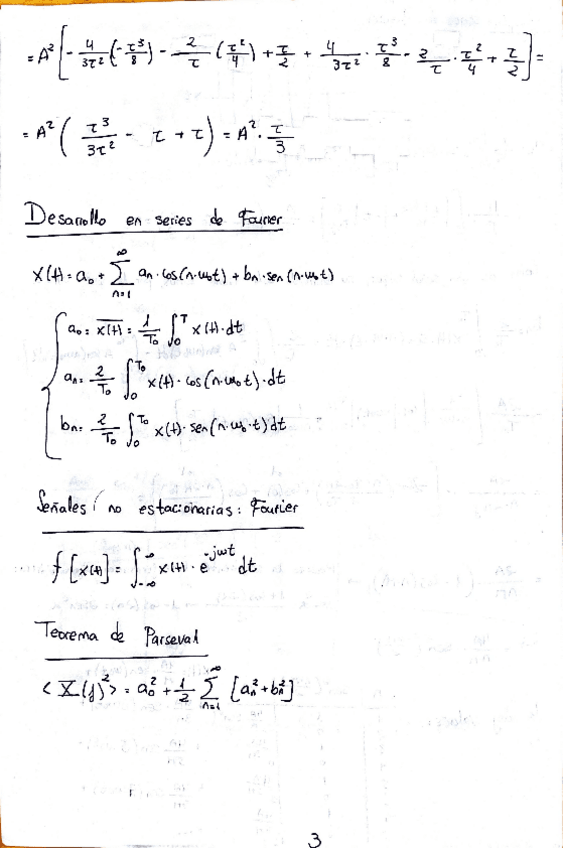 = A² [ - 4/3τ² (-τ³/8) - 2/τ (τ²/4) + τ/2 + 4/3τ² · τ³/8 - 2/τ · τ²/4 + τ/2 ] =
= A² ( τ³/3τ² - τ + τ ) = A² · τ/3
Desarrollo en series de Fourier
x(t) = a₀ + ∑_{n=1}^{∞} aₙ · cos(n·ω₀t) + bₙ · sen(n·ω₀t)
a₀ = \overline{x(t)} = 1/T₀ ∫₀^T x(t)·dt
aₙ = 2/T₀ ∫₀^{T₀} x(t) · cos(n·ω₀t)·dt
bₙ = 2/T₀ ∫₀^{T₀} x(t) · sen(n·ω₀·t) dt
Señales no estacionarias: Fourier
f[x(t)] = ∫_{-∞}^{∞} x(t) · e^{-jωt} dt
Teorema de Parseval
< X(f)² > = a₀² + 1/2 ∑_{n=1}^{∞} [aₙ² + bₙ²]
3